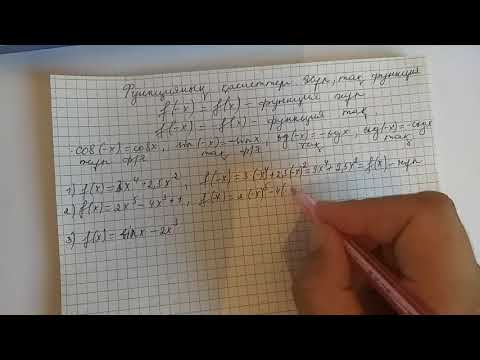 Функцияның қасиеттері жұп, тақ функция
f(-x) = f(x) - функция жұп
f(-x) = -f(x) = функция тақ
cos(-x) = cosx, sin(-x) = -sinx, tg(-x) = -tgx, ctg(-x) = -ctgx
жұп ф/я тақ ф/я тақ тақ
1) f(x) = 3x⁴ + 2,5x², f(-x) = 3·(-x)⁴ + 2,5(-x)² = 3x⁴ + 2,5x² = f(x) - жұп
2) f(x) = 2x⁵ - 4x³ + 1, f(x) = 2·(-x)⁵ - 4(
3) f(x) = sinx - 2x³